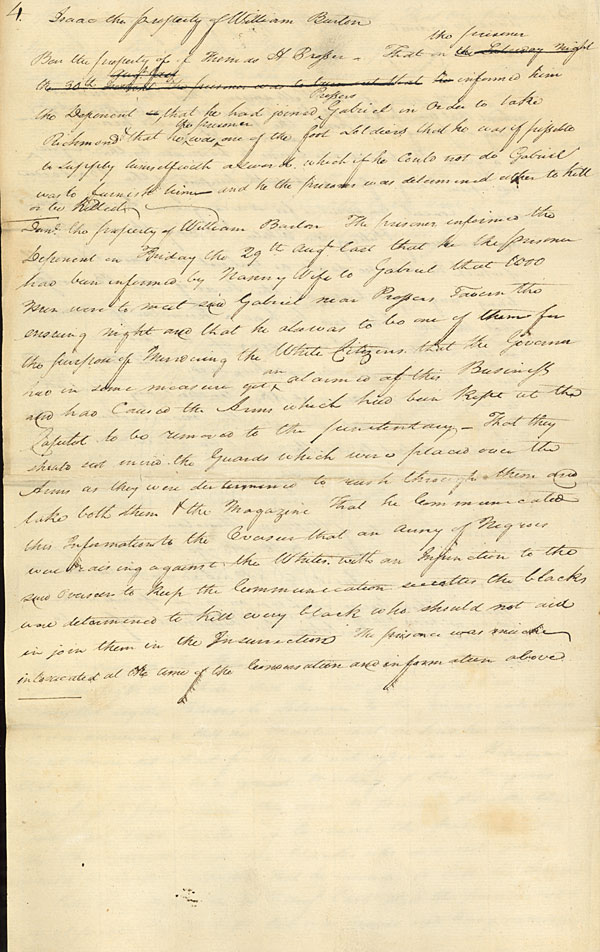 4.
Isaac the property of William Burton
the prisoner
Ben the property of Thomas H Prosser - That on the Saturday night
the 30th August the prisoner was to turn out that he informed him
Prossers
the Deponent that he had joined Gabriel in Order to take
the prisoner
Richmond & that he was one of the foot Soldiers, that he was if possible
to supply himself with a sword. which if he could not do Gabriel
was to furnish him and he the prisoner was determined either to kill
or be killed
Danl. the property of William Burton The prisoner informed the
Deponent on Friday the 29th Augt last that he the prisoner
had been informed by Nanny Wife to Gabriel that 1000
Men were to meet said Gabriel near Prossers Tavern the
ensuing night and that he also was to be one of them for
the purpose of Murdering the White Citizens. that the Governor
an
had in some measure got alarmed of this Business
and had Caused the Arms which had been kept at the
Capitol to be removed to the penitentiary - That they
should not mind the Guards which were placed over the
Arms as they were determined to rush through them and
take both them & the Magazine That he Communicated
this Information to the Overseer that an army of Negroes
were raising against the Whites. with an Injunction to the
said Overseer to keep the Communication secret as the blacks
were determined to kill every black who should not aid
in join them in the Insurrection The prisoner was much
intoxicated at the time of the Conversation and information above